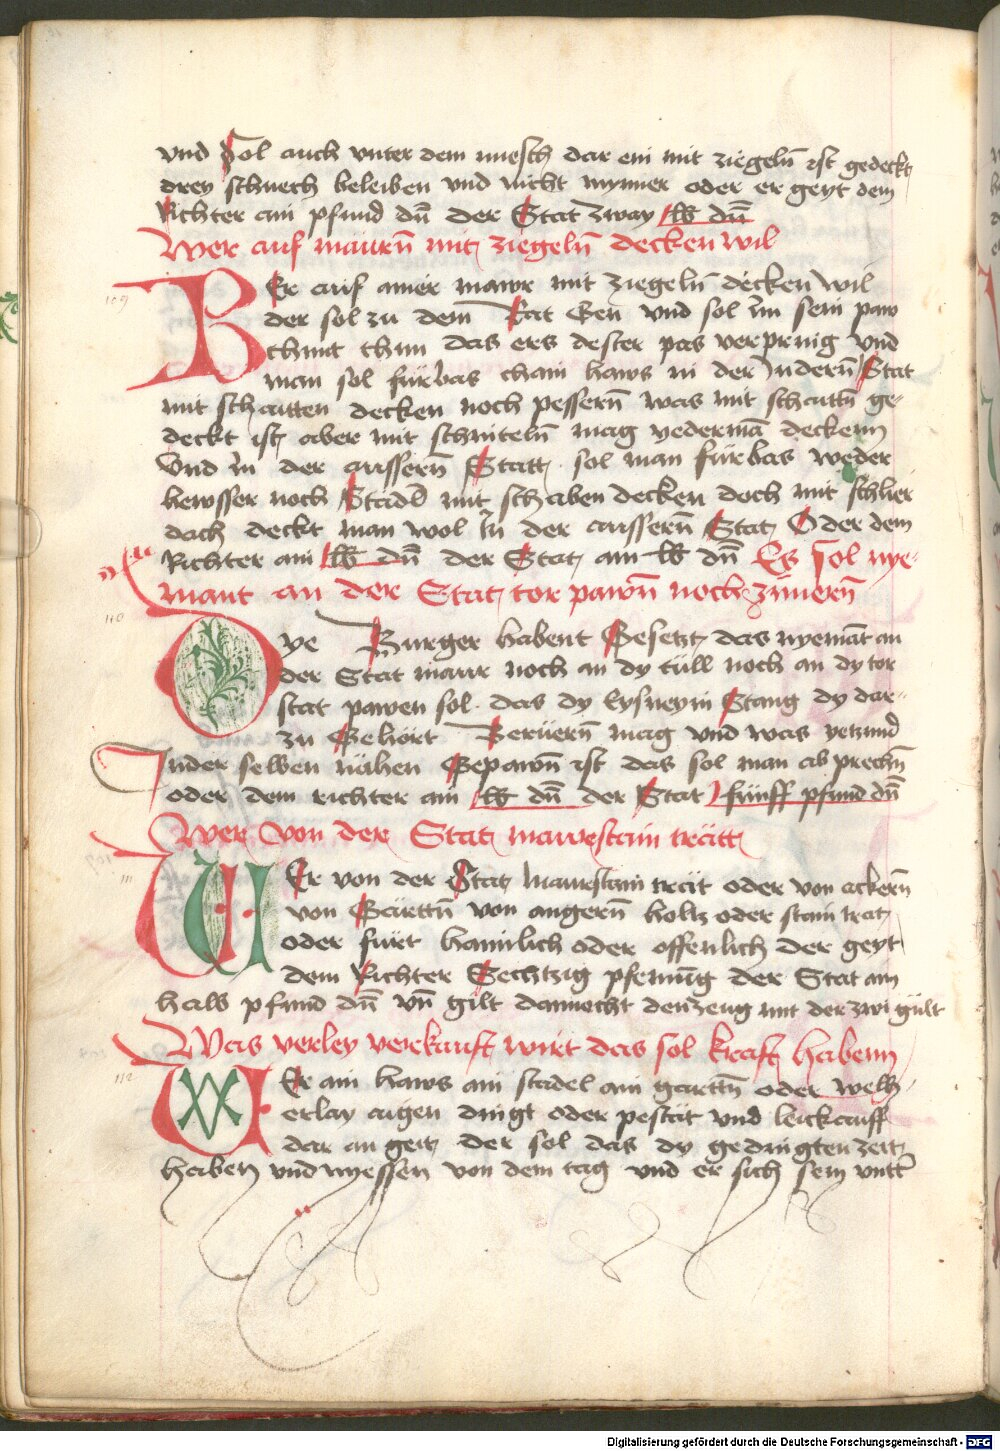 vnd sol auch vnter dem miesch dar ein mit ziegelñ ist gedeckt
drey schuech beleiben vnd nicht mynner oder er geyt dem
Richter ain pfund dñ der Stat zway lb dñ
Wer auf maurñ mit ziegelñ decken wil
109
Er auf ainer mawr mit ziegelñ decken wil
der sol zu dem Rat Gen vnd sol im sein paw
chunt thun das ers dester pas verpring vnd
man sol fürbas chain haws in der Inderñ Stat
mit schauten decken noch pesserñ was mit schauttñ ge-
deckt ist aber mit schintelñ mag yederma͂ deckenn
Vnd in der ausserñ Statt sol man fürbas weder
hewsser noch Stadel mit schaben decken doch mit schlier
dach deckt man wol in der ausserñ Stat Oder dem
Richter ain lb dñ der Stat ain lb dñ Es sol nye-
mant an der Stat tor pawñ noch zimerñ
110
Dye Burger habent Gesetzt das nyema͂t an
der Stat maur noch an dy tüll noch an dy tor
stat pawen sol das dy Eysneyin Stang dy dar-
zu Gehört Berüerñ mag vnd was yetzund
Inder selben nähen Gepawñ ist das sol man ab prechñ
oder dem richter ain lb dñ der Stat fünff pfund dñ
Wer von der Stat mawrstain trätt
111
WEr von der Stat Maurstain trät oder von ackerñ
von Gärttñ von angerñ holtz oder stain trat
oder fürt haimlich oder offenlich der geyt
dem Richter Sechtzig pfening der Stat ain
halb pfund dñ vñ gilt dannecht den zeug mit der zwigült
Was verley verkauft wirt das sol kraft habenn
112
WEr ain haws ain stadel ain garttñ oder welh
erlay aigen dingt oder pestät vnd leickauff
dar an geit der sol das dy gedingten zeit
haben vnd nyessen von dem tag vnd er sich sein vntt
Digitalisierung gefördert durch die Deutsche Forschungsgemeinschaft - DFG